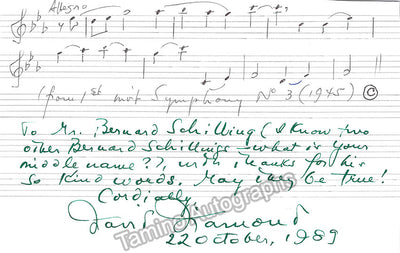 Allegro
(from 1st mvt Symphony Nº 3 (1945) ©
To Mr. Bernard Schilling (I know two
other Bernard Schillings – what is your
middle name??, with thanks for his
so kind words. May they be true!
Cordially,
David Diamond
22 October, 1989
Tamino Autographs